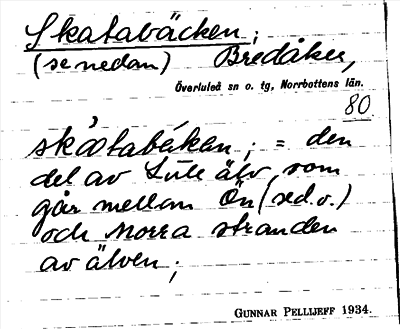 Skatabäcken;
(se nedan) Bredåker,
Överluleå sn o. tg, Norrbottens län.
80
den
del av Lule älv, som
går mellan Ön (sed.o.)
och Norra stranden
av älven;
GUNNAR PELLIJEFF 1934.